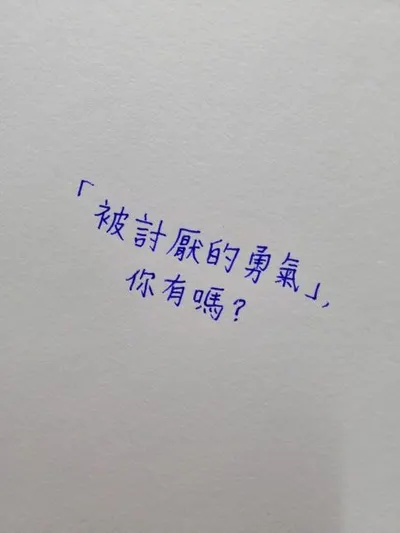 「被討厭的勇氣」,
你有嗎?